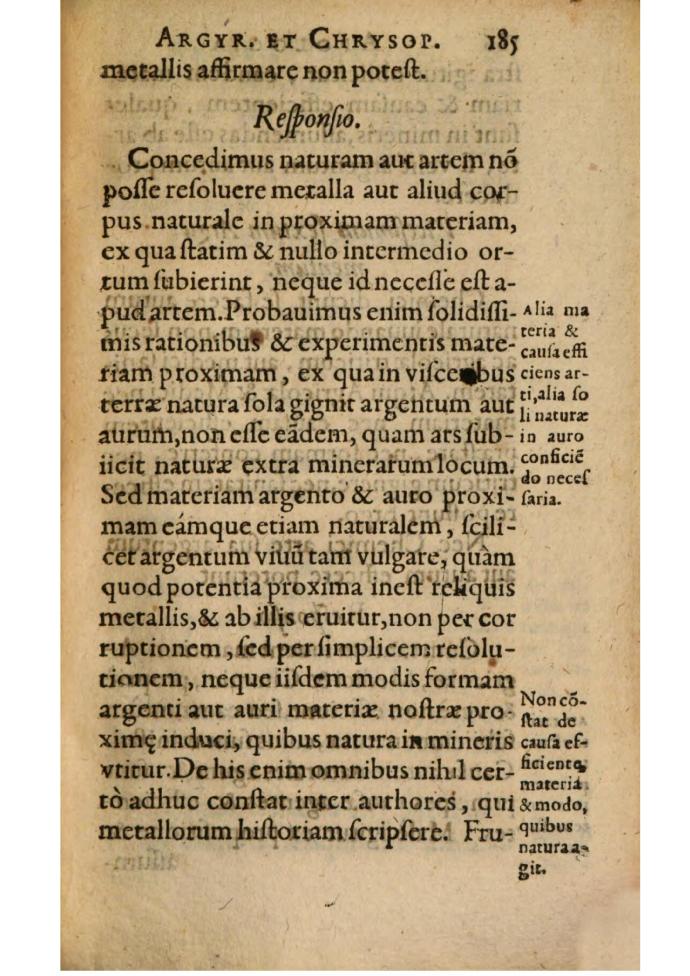 ARGYR. ET CHRYSOP. 185
metallis affirmare non poteſt.
Reſponſio.
Concedimus naturam aut artem nõ
poſſe reſoluere metalla aut aliud cor-
pus naturale in proximam materiam,
ex qua ſtatim & nullo intermedio or-
tum ſubierint, neque id neceſſe eſt a-
pud artem. Probauimus enim ſolidiſſi-
mis rationibus & experimentis mate-
riam proximam, ex qua in viſceribus
terræ natura ſola gignit argentum aut
aurum, non eſſe eãdem, quam ars ſub-
iicit naturæ extra minerarum locum.
Sed materiam argento & auro proxi-
mam eámque etiam naturalem, ſcili-
cet argentum viuũ tam vulgare, quàm
quod potentia proxima ineſt reliquis
metallis, & ab illis eruitur, non per cor
ruptionem, ſed per ſimplicem reſolu-
tionem, neque iiſdem modis formam
argenti aut auri materiæ noſtræ pro-
ximę induci, quibus natura in mineris
vtitur. De his enim omnibus nihil cer-
tò adhuc conſtat inter authores, qui
metallorum hiſtoriam ſcripſere. Fru-
Alia ma
teria &
cauſa effi
ciens ar-
ti, alia ſo
li naturæ
in auro
conficiẽ
do neceſ
ſaria.
Non cõ-
ſtat de
cauſa ef-
ficiente,
materia
& modo,
quibus
natura a-
git.